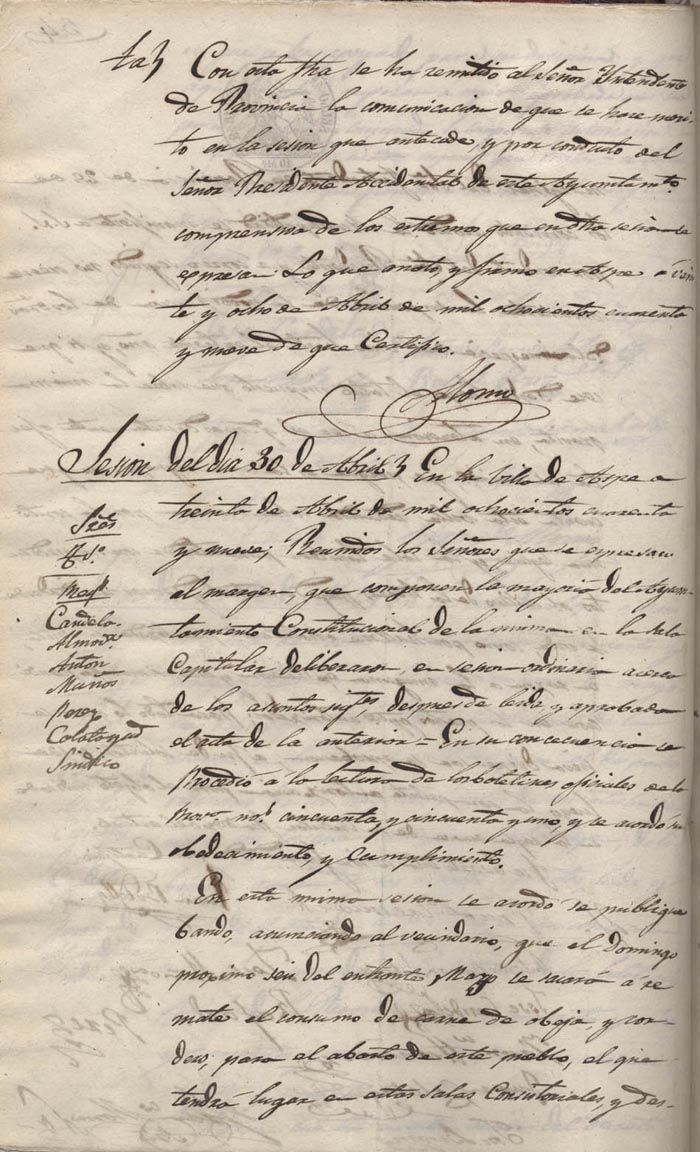 Con esta fha se ha remitido al Señor Yntendente
de Provincia la comunicacion de que se hace meri-
to en la sesion que antecede, y por conducto del
Señor Presidente Accidental de este Ayuntamto.
comprensiva de los estremos que en dha sesion se
espresa. Lo que anoto, y firmo en Aspe á vein
te y ocho de Abril de mil ochocientos cuarenta
y nueve de que Certifico.
Sesion del dia 30 de Abril En la Villa de Aspe a
treinta de Abril de mil ochocientos cuarenta
y nueve; Reunidos los Señores que se espresan
al margen, que componen la mayoria del Ayun-
tamiento Constitucional de la misma en la Sala
Capitular deliberaron en sesion ordinaria acerca
de los asuntos sigtes, despues de leida y aprobada
el acta de la anterior = En su concecuencia se
Procedió a la lectura de los boletines oficiales de la
Prova. nos. cincuenta, y cincuenta y uno, y se acordó su
obedecimiento, y Cumplimiento.
Sres
Candela.
Almodr.
Anton
Muños
Perez
Calatayud
Sindico
En esta misma sesion se acordó se publique
bando, anunciando al vecindario, que el Domingo
proximo seis del entrante Mayo se sacará a re
mate el consumo de carne de obeja, y cor-
dero, para el abasto de este pueblo, el que
tendrá lugar en estas salas Consistoriales, y des-